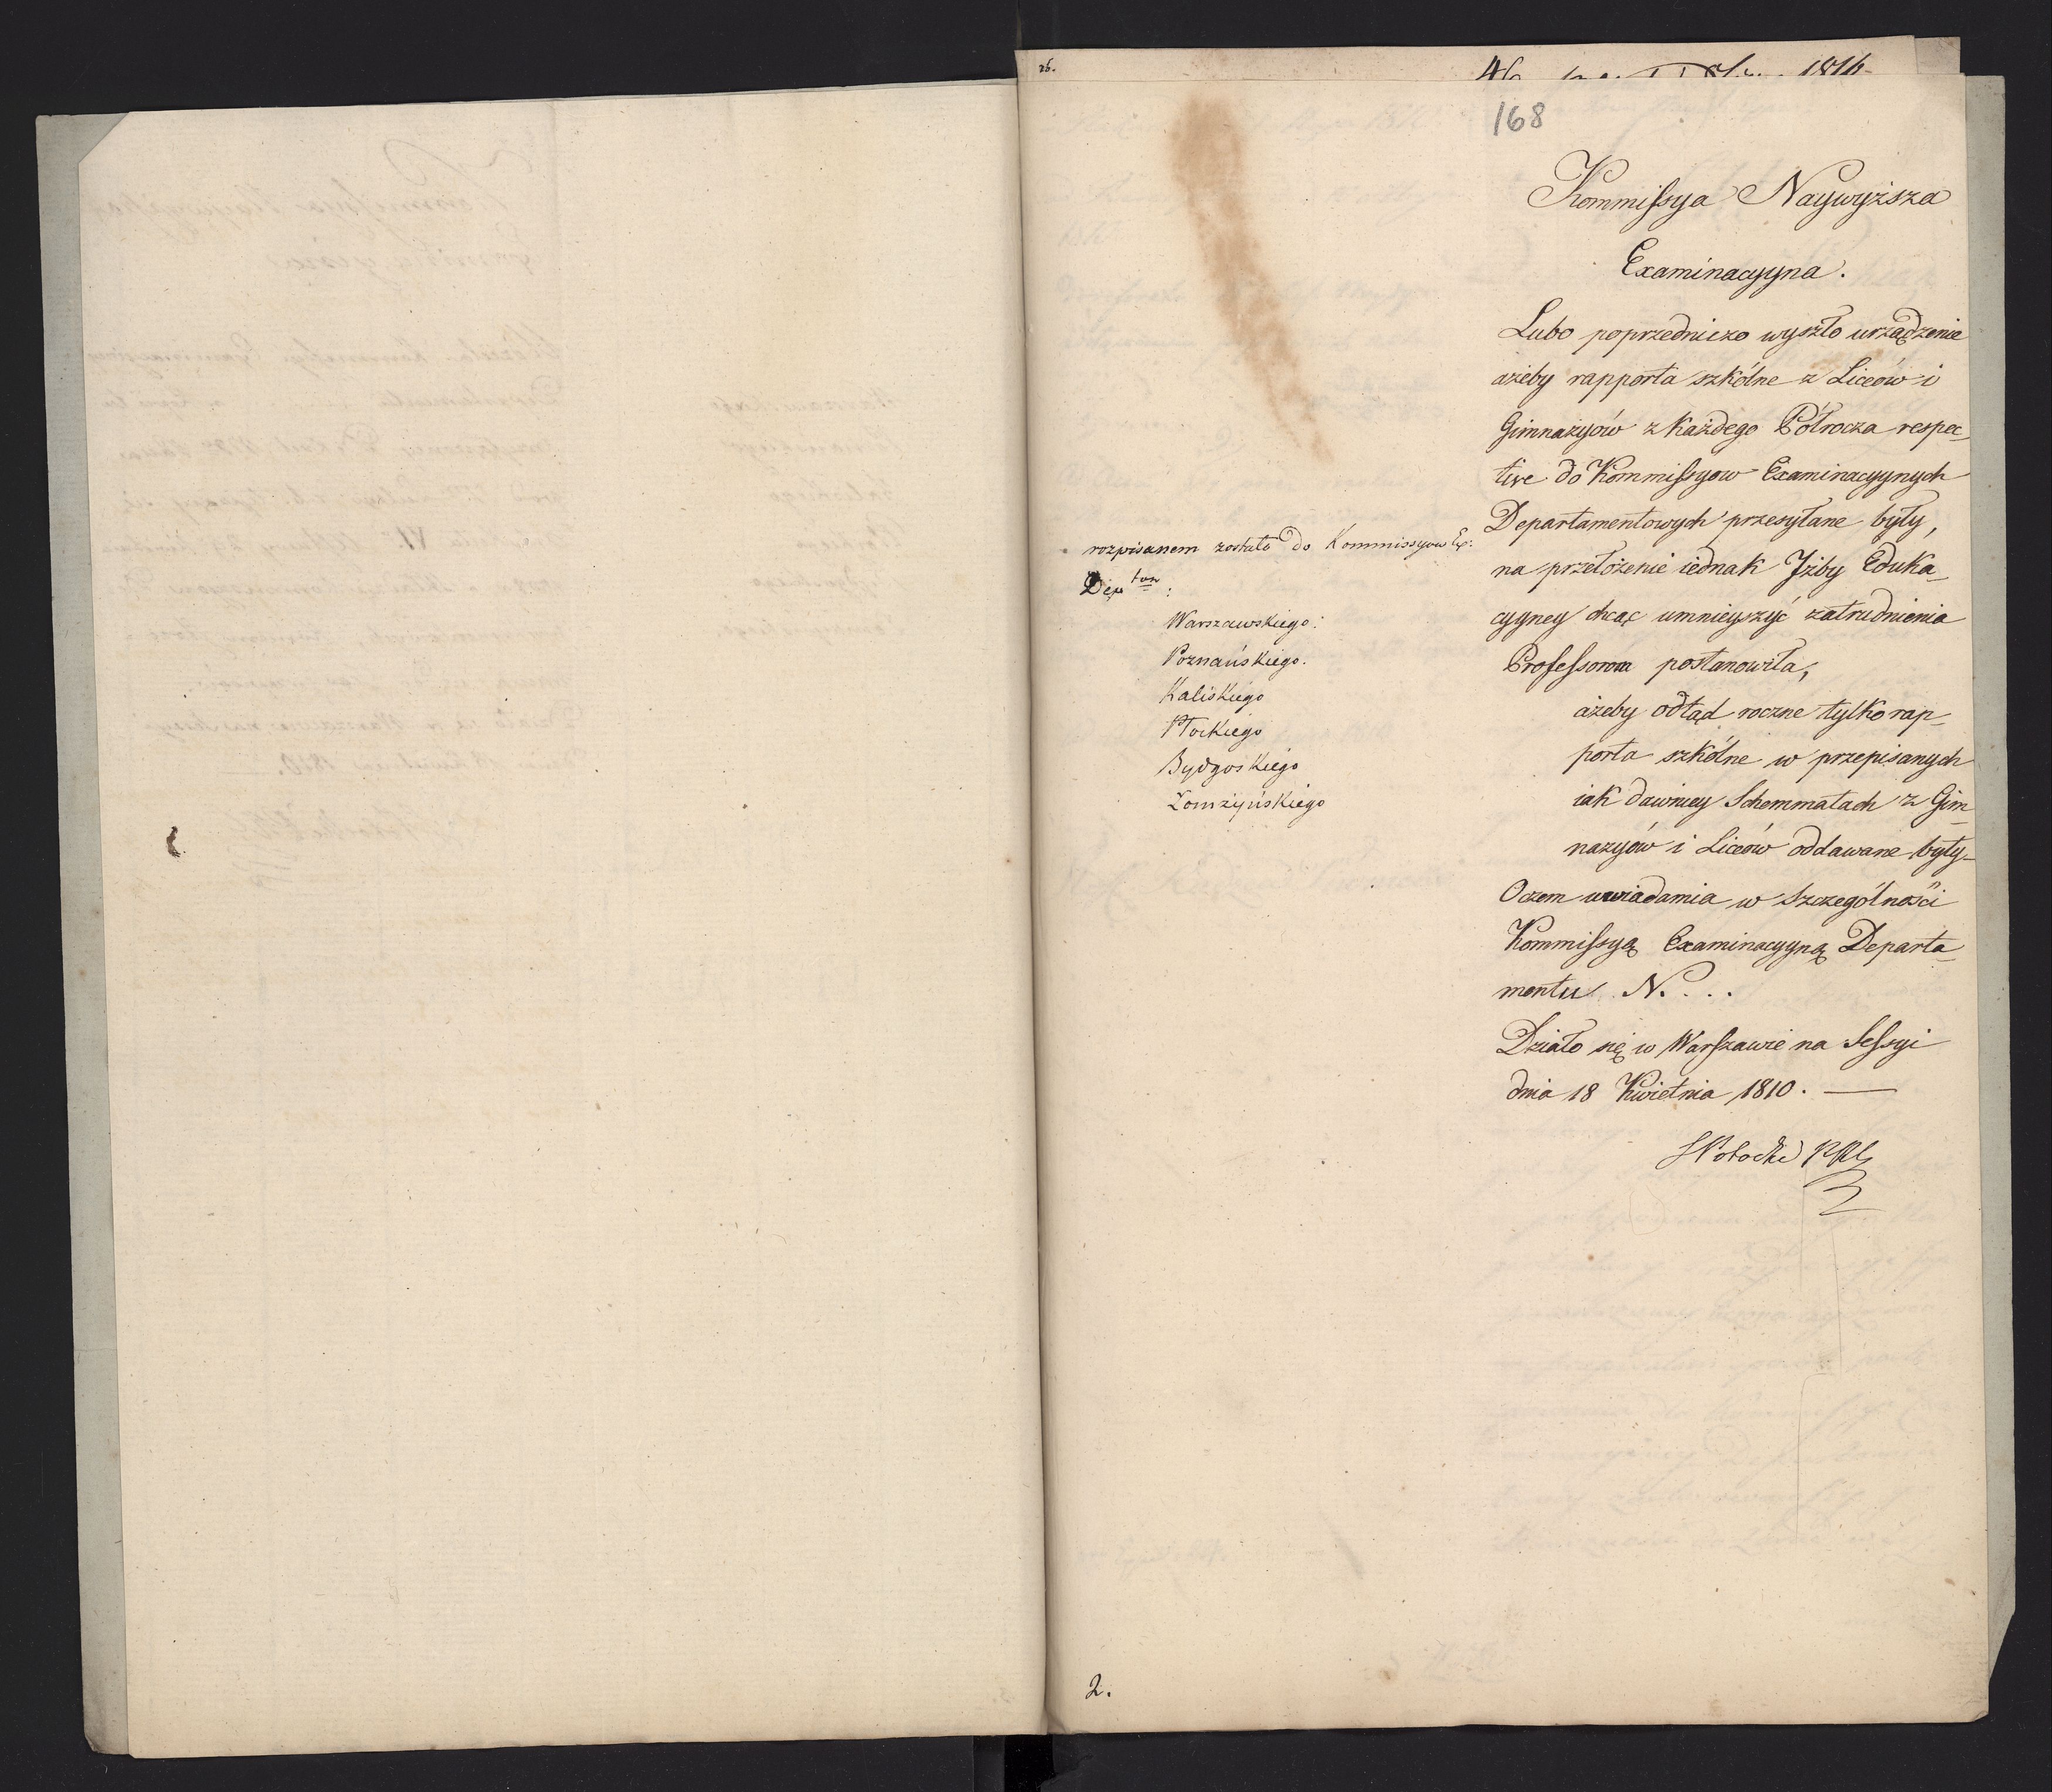 26.
1816
168
Kommissya Naywyższa
Examinacyyna.
Lubo poprzedniczo wyszło urządzenie
ażeby rapporta szkólne z Liceów i
Gimnazyów z każdego Półrocza respec_
tive do Kommissyow Examinacyynych
Departamentowych przesyłane były,
na przełożenie iednak Jzby Eduka_
cyyney chcąc umnieyszyć zatrudnienia
Professorom postanowiła,
ażeby odtąd roczne tylko rap_
porta szkólne w przepisanych
iak dawniey Schemmatach z Gim_
nazyów i Liceów oddawane były_
Oczem uwiadamia w szczególności
Kommissyą Examinacyyną Departa_
mentu N. . . .
Działo się w Warszawie na Sessyi
dnia 18 Kwietnia 1810. —
SPotocki
rozpisanem zostało do Kommissyow Ex:
Dep tow :
Warszawskiego:
Poznańskiego.
Kaliskiego
Płockiego
Bydgoskiego
Łomżyńskiego
2.